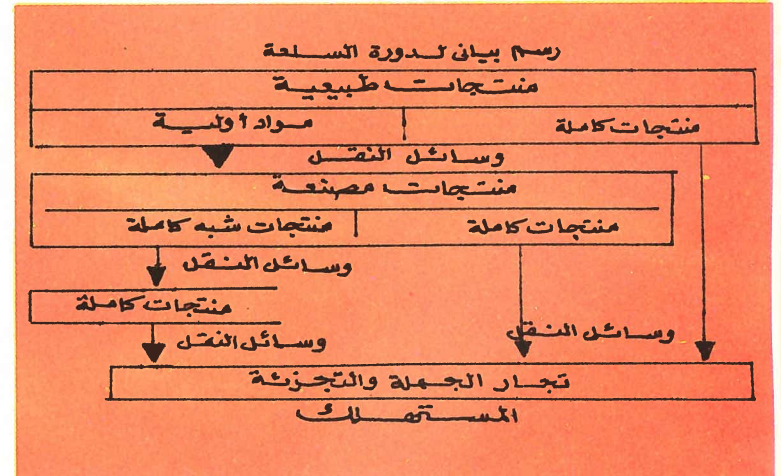 رسم بيانى لدورة السلعة
منتجات طبيعية
منتجات كاملة
مواد أولية
وسائل النقل
منتجات مصنعة
منتجات كاملة
منتجات شبه كاملة
وسائل النقل
منتجات كاملة
وسائل النقل
وسائل النقل
تجار الجملة والتجزئة
المستهلك